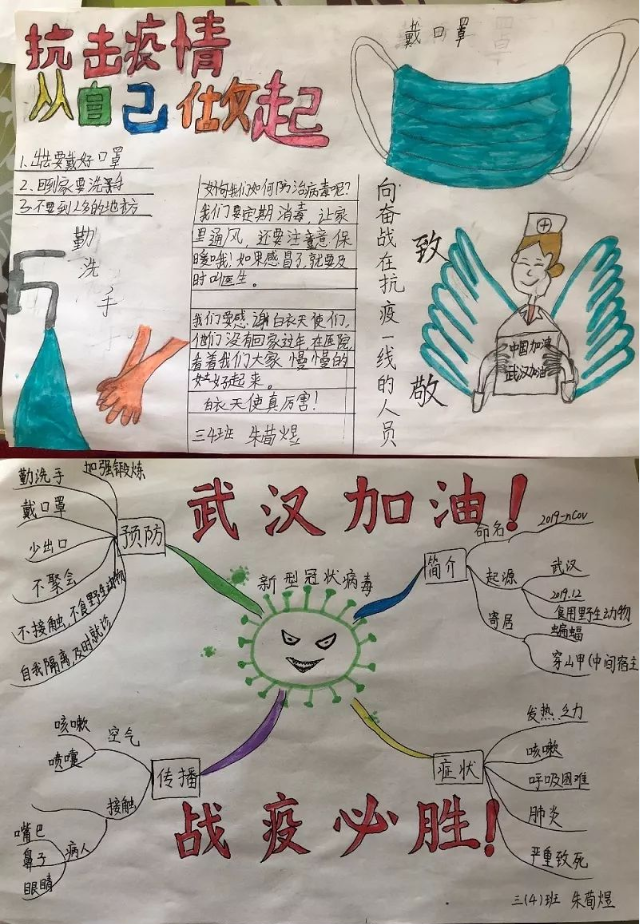 抗击疫情
从自己做起
1.出去要戴好口罩
2.回到家要洗手
3.不要到人多的地方
勤
洗
手
如何我们如何防治病毒呢?
我们要定期消毒,让家
里通风,还要注意意保
暖哦!如果感冒了,就要及
时叫医生。
我们要感谢白衣天使们,
他们没有回家过年在医院
看着我们大家慢慢的
好起来。
白衣天使真厉害!
三4班 朱荀煜
戴口罩
向奋战在抗疫一线的人员
致
敬
中国加油
武汉加油
武汉加油!
新型冠状病毒
预防
勤洗手
加强锻炼
戴口罩
少出口
不聚会
不接触,不食野生动物
自我隔离,及时就诊
简介
命名
2019-nCoV
起源
武汉
2019.12
食用野生动物
寄居
蝙蝠
穿山甲(中间宿主
传播
空气
咳嗽
喷嚏
接触
病人
嘴巴
鼻子
眼睛
症状
发热,乏力
咳嗽
呼吸困难
肺炎
严重致死
战疫必胜!
三(4)班 朱荀煜